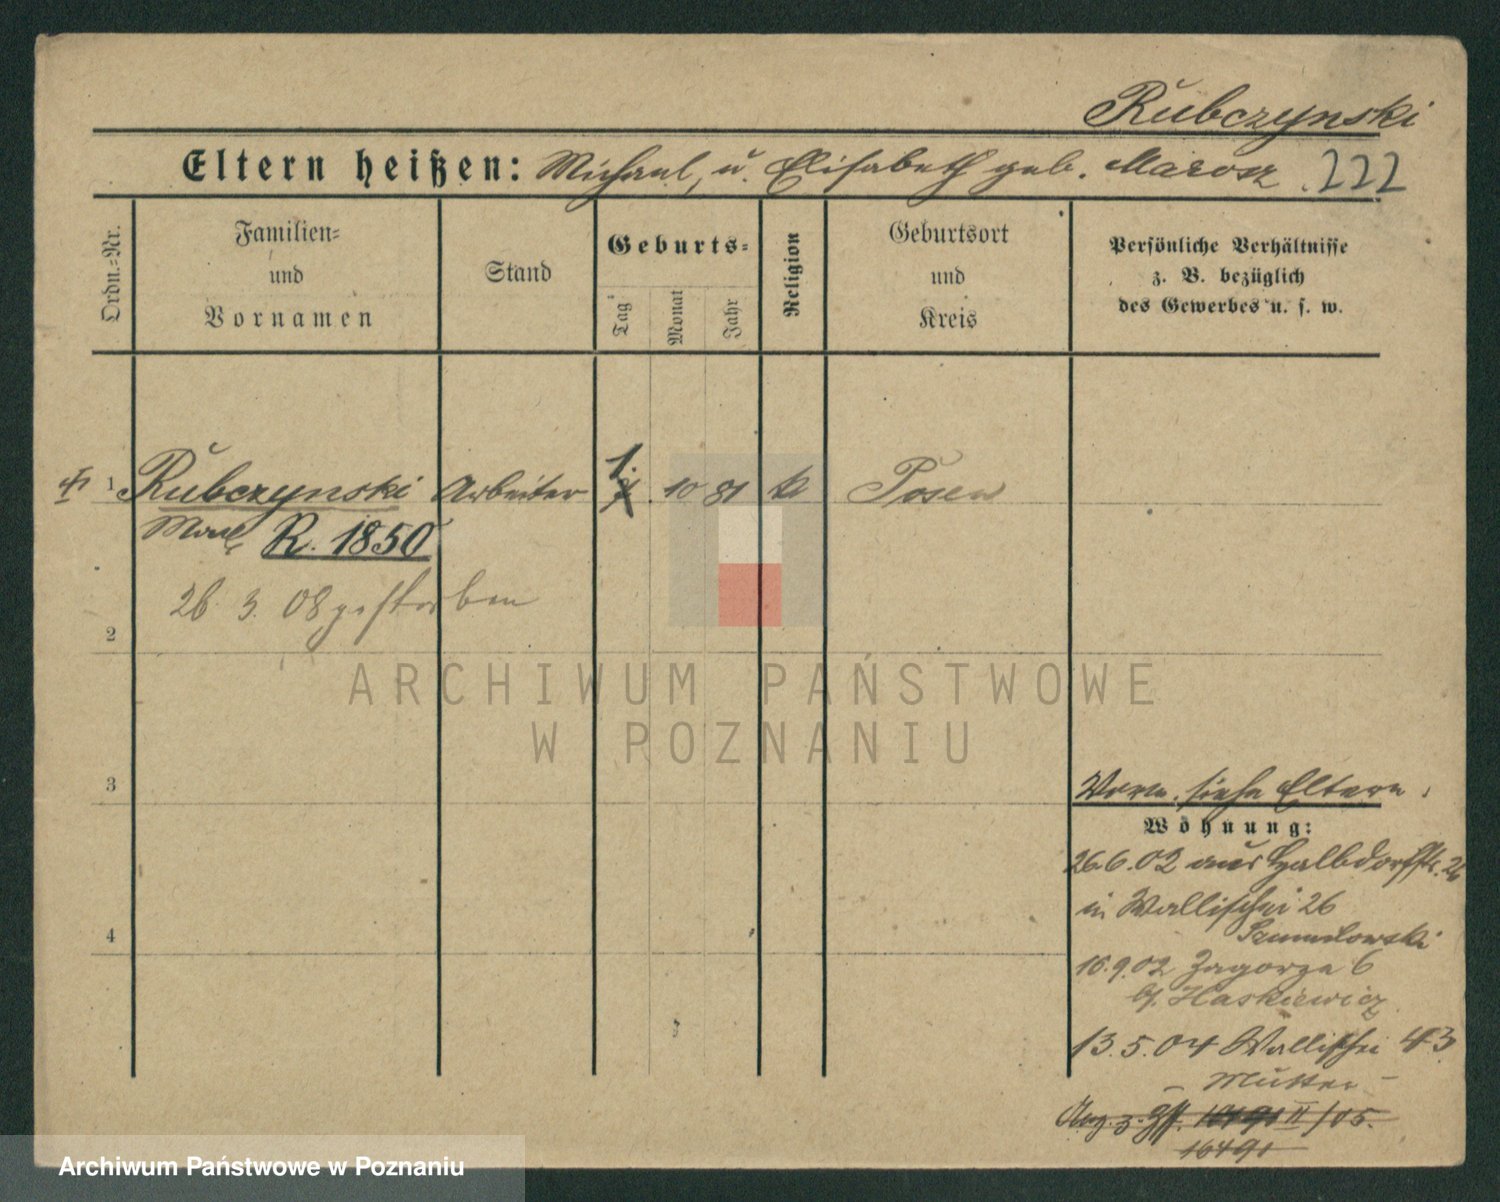 Rubczynski
Eltern heißen: Michael, u. Elisabeth geb. Marosz. 222
Ordn.=Nr.
Familien=
und
Vornamen
Stand
Geburts=
Tag
Monat
Jahr
Religion
Geburtsort
und
Kreis
Persönliche Verhältnisse
z. B. bezüglich
des Gewerbes u. s. w.
1 Rubczynski Arbeiter 1. 10 81 k Posen
R. 1850
26. 3. 08 gestorben
2
3
4
Vorm. siehe Eltern.
Wohnung:
26.6.02 aus Halbdorfstr. 26
in Wallischei 26
Szumilowski
16.9.02 Zagorze 6
bf. Haskiewicz
13.5.04 Wallischei 43
Mutter
II/05.
16491
ARCHIWUM PAŃSTWOWE
W POZNANIU
Archiwum Państwowe w Poznaniu